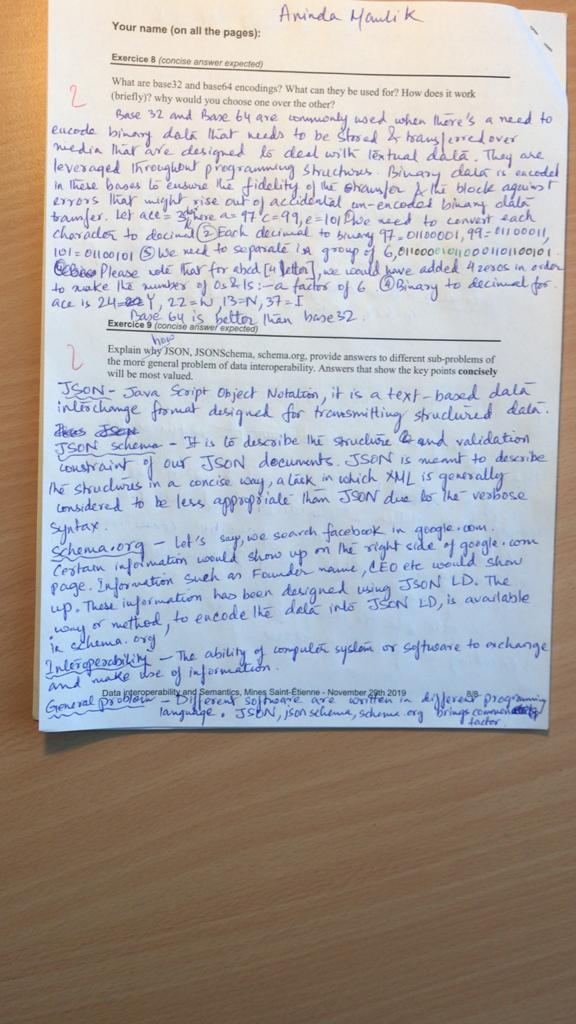 Aninda Maulik
Your name (on all the pages):
Exercice 8 (concise answer expected)
What are base32 and base64 encodings? What can they be used for? How does it work
(briefly)? why would you choose one over the other?
2
Base 32 and Base 64 are commonly used when there's a need to
encode binary data that needs to be stored & transferred over
media that are designed to deal with textual data. They are
leveraged throughout programming structures. Binary data is encoded
in these bases to ensure the fidelity of the transfer & the block against
errors that might rise out of accidental un-encoded binary data
transfer. Let ace = 3 here a = 97 c = 99, e = 101 ① We need to convert each
character to decimal ② Each decimal to binary 97 = 01100001, 99 = 01100011,
101 = 01100101 ③ We need to separate in a group of 6, 011000010110001101100101
Please note that for abcd [4 letter], we would have added 4 zeros in order
to make the number of 0s & 1s :- a factor of 6 ④ Binary to decimal for
ace is 24 = Y, 22 = W, 13 = N, 37 = I
Base 64 is better than base 32.
Exercice 9 (concise answer expected)
how
2
Explain why JSON, JSONSchema, schema.org, provide answers to different sub-problems of
the more general problem of data interoperability. Answers that show the key points concisely
will be most valued.
JSON - Java Script Object Notation, it is a text-based data
interchange format designed for transmitting structured data.
JSON schema - It is to describe the structure and validation
constraint of our JSON documents. JSON is meant to describe
the structures in a concise way, a task in which XML is generally
considered to be less appropriate than JSON due to the verbose
syntax.
Schema.org - Let's say, we search facebook in google.com.
Certain information would show up on the right side of google.com
page. Information such as Founder name, CEO etc would show
up. These information has been designed using JSON LD. The
way or method, to encode the data into JSON LD, is available
in schema.org
Interoperability - The ability of computer system or software to exchange
and make use of information.
Data interoperability and Semantics, Mines Saint-Étienne - November 29th 2019 8/8
General problem - Different software are written in different programming
language. JSON, json schema, schema.org brings common
factor.